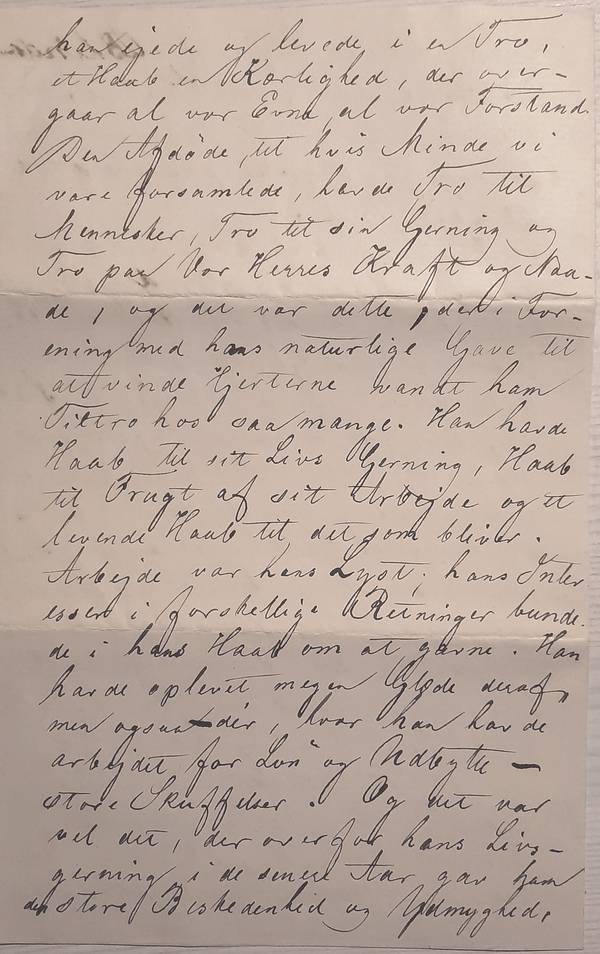 han ejede og levede i en Tro,
et Haab en Kærlighed, der over-
gaar al vor Evne, al vor Forstand.
Den Afdöde, til hvis Minde vi
vare forsamlede, havde Tro til
Mennesker, Tro til sin Gerning og
Tro paa Vor Herres Kraft og Naa-
de, og det var dette, der i For-
ening med hans naturlige Gave til
at vinde Hjerterne vandt ham
Tiltro hos saa mange. Han havde
Haab til sit Livs Gerning, Haab
til Frugt af sit Arbejde og et
levende Haab til det som bliver.
Arbejde var hans Lyst; hans Inter
esser i forskellige Retninger bunde-
de i hans Haab om at gavne. Han
havde oplevet megen Glæde deraf,
men ogsaa dér, hvor han havde
arbejdet for Lön og Udbytte –
store Skuffelser. Og det var
vel det, der overfor hans Livs-
gerning i de senere Aar gav ham
den store Beskedenhed og Ydmyghed,